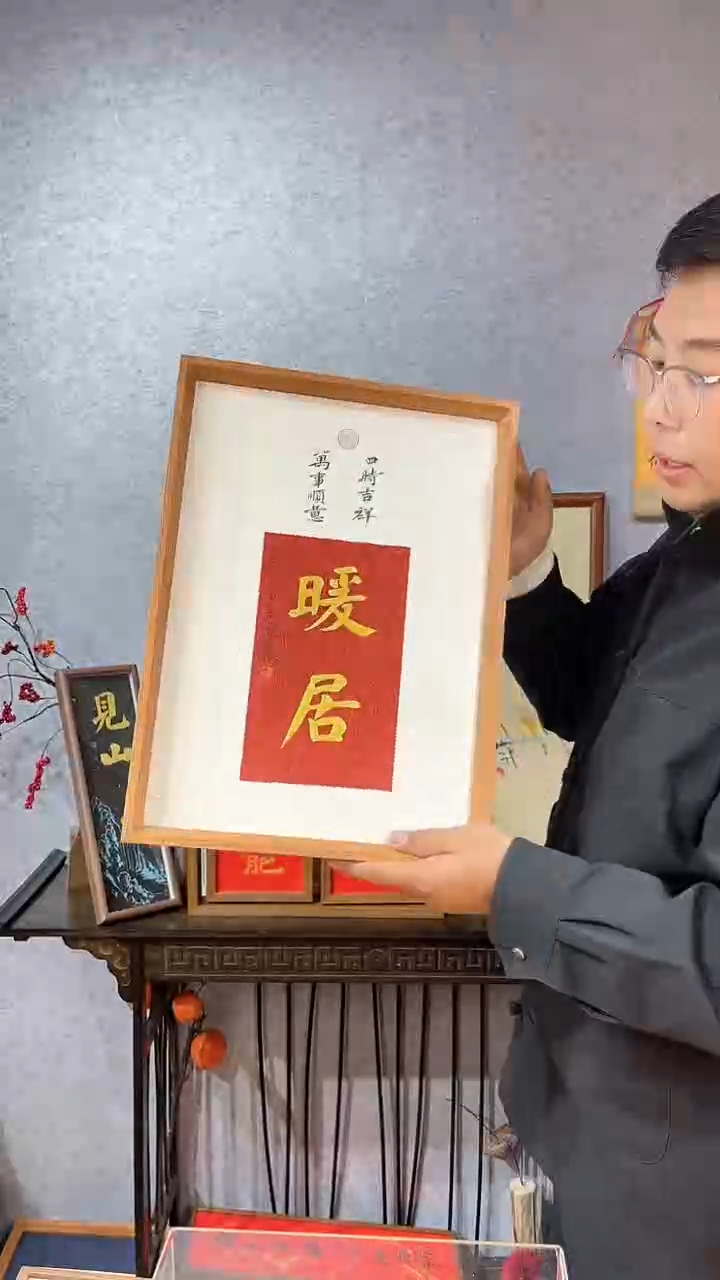 四時吉祥
萬事順意
暖居
見山
肥